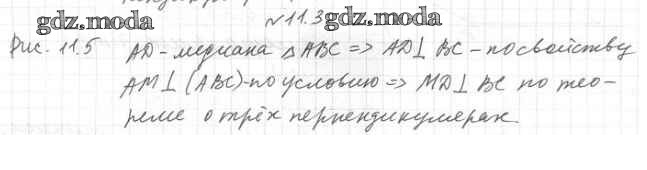 №11.3
gdz.moda gdz.moda
Рис. 11.5 AD - медиана △ABC => AD⊥ BC - по свойству
AM⊥ (ABC) - по условию => MD⊥ BC по тео-
реме о трёх перпендикулярах.